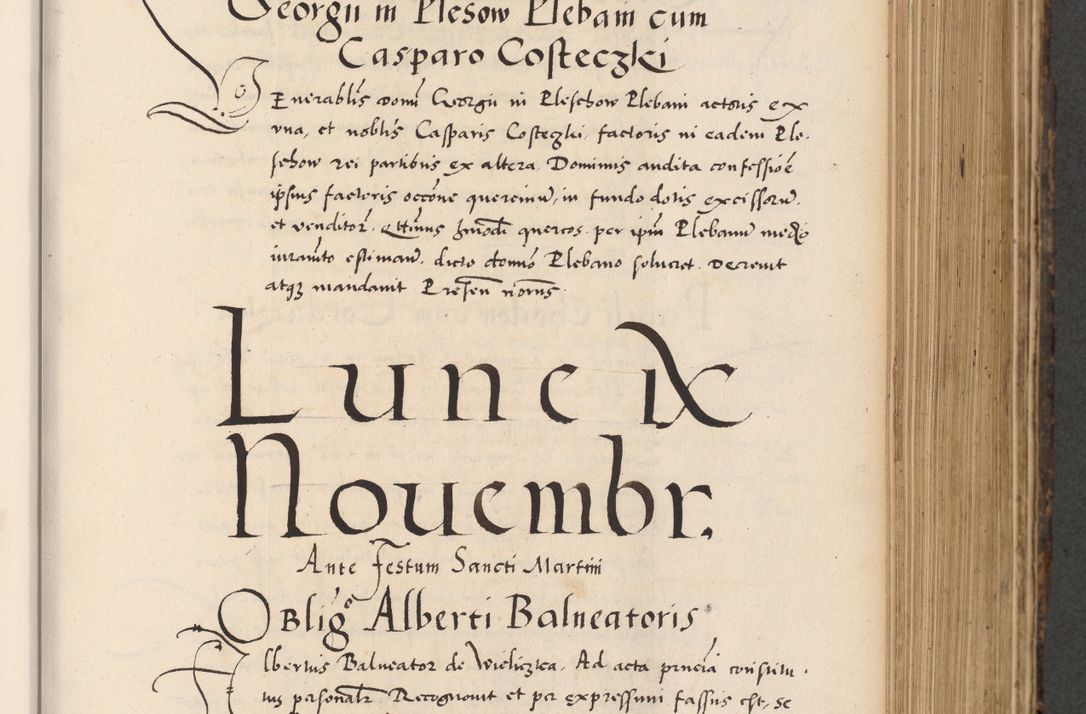 Georgii in Plesow Plebani cum
Casparo Costeczki
Venerablis domi Georgii in Pleschow Plebani actoris ex
vna, et noblis Casparis Costeczki, factoris in eadem Ple,
schow rei partibus ex altera. Dominus audita confessioe
ipsius factoris occone quercuum, in fundo dotis excissoru,
et venditor, quercos per ipm Plebanum medio
iuramto estimau, dicto domo Plebano solueret. Decreuit
atqz mandauit Presen
Lune ix
Nouembr.
Ante Festum Sancti Martini
Oblig Alberti Balneatoris
Albertus Balneator de Wieliczka, Ad acta pncia constitu,
tus personalr Recognouit et per expressum fassus est, se